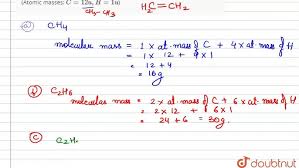 (Atomic masses: C = 12u, H = 1u)
CH₃-CH₃
H₂C=CH₂
(a) CH₄
molecular mass = 1 x at. mass of C + 4 x at. mass of H
= 1 x 12 + 4 x 1
= 12 + 4
= 16g
(b) C₂H₆
molecular mass = 2 x at. mass of C + 6 x at. mass of H
= 2 x 12 + 6 x 1
= 24 + 6 = 30g.
(c) C₂H
doubtnut